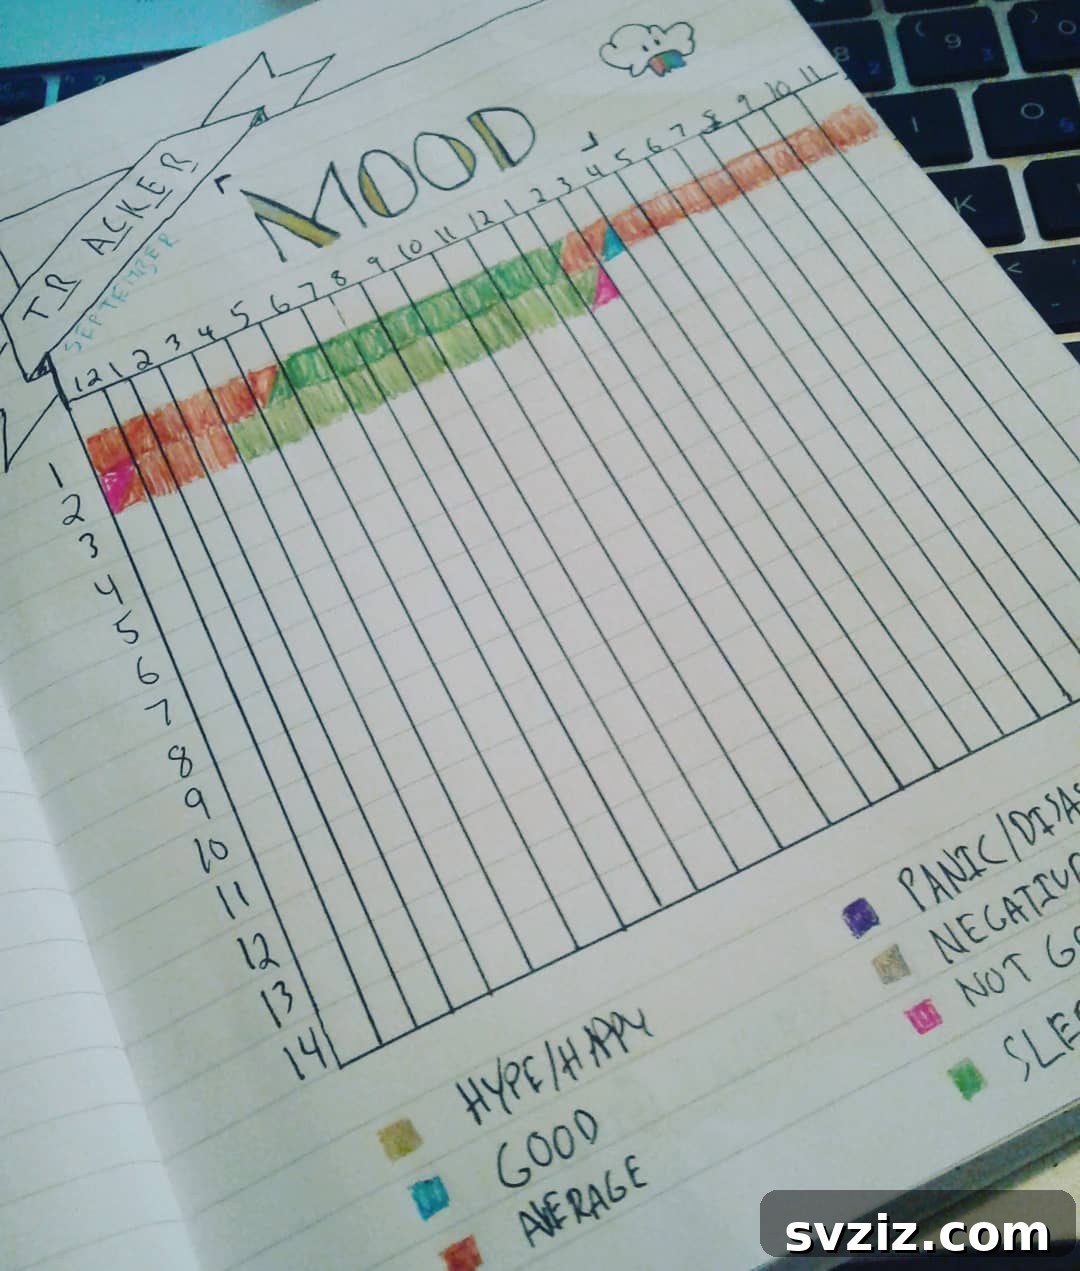 MOOD
TRACKER
SEPTEMBER
12 1 2 3 4 5 6 7 8 9 10 11 12 1 2 3 4 5 6 7 8 9 10 11
1
2
3
4
5
6
7
8
9
10
11
12
13
14
HYPE/HAPPY
GOOD
AVERAGE
PANIC/
NOT
svziz.com